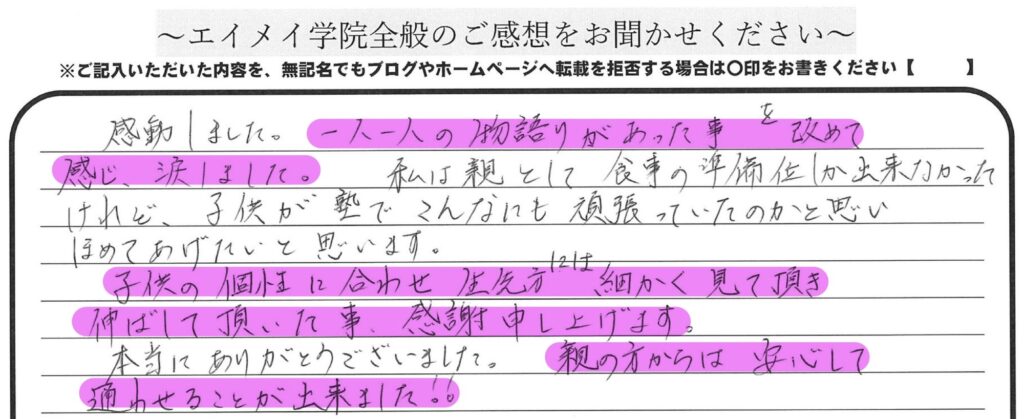 ～エイメイ学院全般のご感想をお聞かせください～
※ご記入いただいた内容を、無記名でもブログやホームページへ転載を拒否する場合は〇印をお書きください【　　　】
感動しました。一人一人の物語りがあった事を改めて
感じ、涙しました。　私は親として食事の準備位しか出来なかった
けれど、子供が塾でこんなにも頑張っていたのかと思い
ほめてあげたいと思います。
子供の個性に合わせ先生方には細かく見て頂き
伸ばして頂いた事、感謝申し上げます。
本当にありがとうございました。　親の方からは安心して
通わせることが出来ました!!